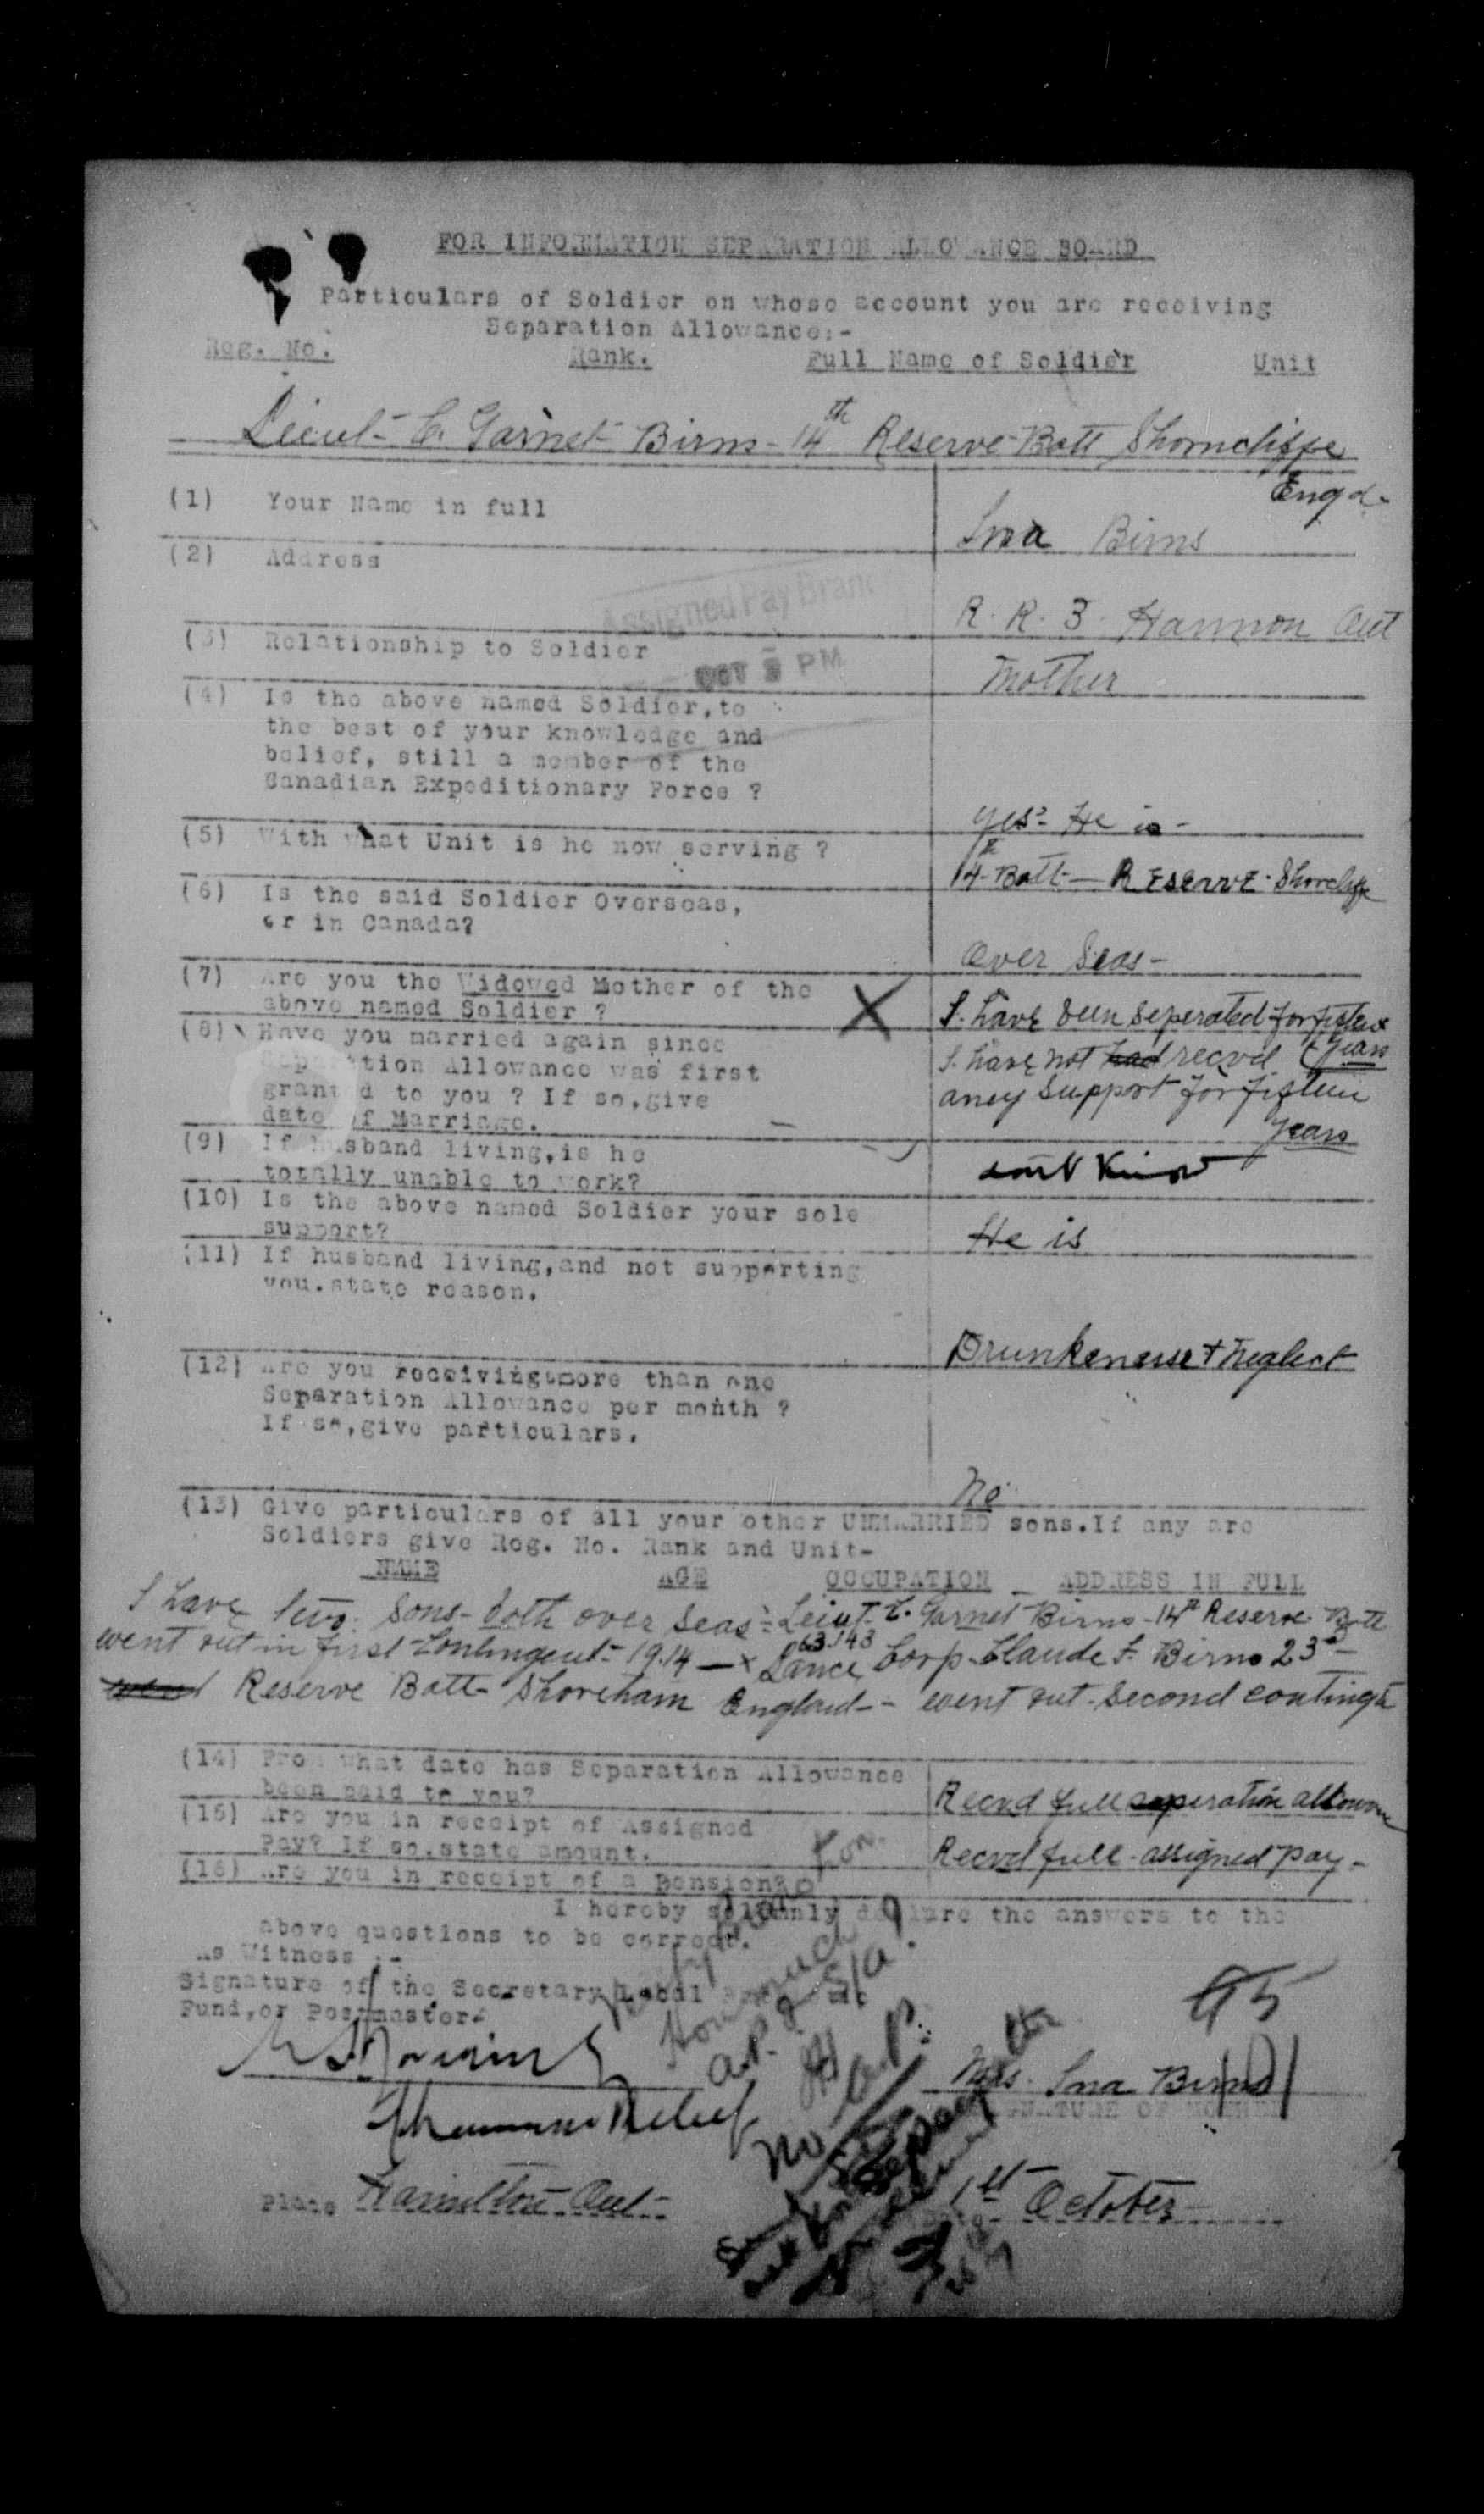 FOR INFORMATION SEPARATION ALLOWANCE BOARD
Particulars of Soldier on whose account you are receiving
Separation Allowance:-
Reg. No. Rank. Full Name of Soldier Unit
Lieut- C. Garnet Birns - 14th Reserve Batt Shorncliffe
Engd-
(1) Your Name in full
Ina Birns
(2) Address
Assigned Pay Branch
R. R. 3. Hannon Ont
(3) Relationship to Soldier
OCT PM
Mother
(4) Is the above named Soldier, to
the best of your knowledge and
belief, still a member of the
Canadian Expeditionary Force ?
yes- He is -
(5) With what Unit is he now serving ?
14th Batt - RESERVE - Shorcliffe
(6) Is the said Soldier Overseas,
or in Canada?
Over Seas -
(7) Are you the Widowed Mother of the
above named Soldier ?
X
I. have been seperated for fifteen
years
(8) Have you married again since
Separation Allowance was first
granted to you ? If so, give
date of Marriage.
I have not had recvd
aney support for fifteen
years
(9) If husband living, is he
totally unable to work?
dont know
(10) Is the above named Soldier your sole
support?
He is
(11) If husband living, and not supporting
you. state reason.
Drunkenesse + neglect
(12) Are you receiving more than one
Separation Allowance per month ?
If so, give particulars.
No
(13) Give particulars of all your other UNMARRIED sons. If any are
Soldiers give Reg. No. Rank and Unit-
NAME AGE OCCUPATION ADDRESS IN FULL
I have two sons - both over seas - Leiut. C. Garnet Birns - 14th Reserve Batt
went out in first Contingent - 1914 - x Lance Corp Claude F. Birns 23rd
63143
went Reserve Batt - Shoreham England - - went out - second contingt
(14) From what date has Separation Allowance
been paid to you?
Recvd full seperation allowance
(15) Are you in receipt of Assigned
Pay? If so, state amount.
Recvd full - assigned pay -
(16) Are you in receipt of a Pension?
I hereby solemnly declare the answers to the
above questions to be correct.
As Witness :-
Signature of the Secretary Local
Fund, or Postmaster.
How much
A.P. & S/A ?
No A.P.
95
Mrs. Ina Birns
SIGNATURE OF MOTHER
Place Hamilton Ont -
Date 1st October